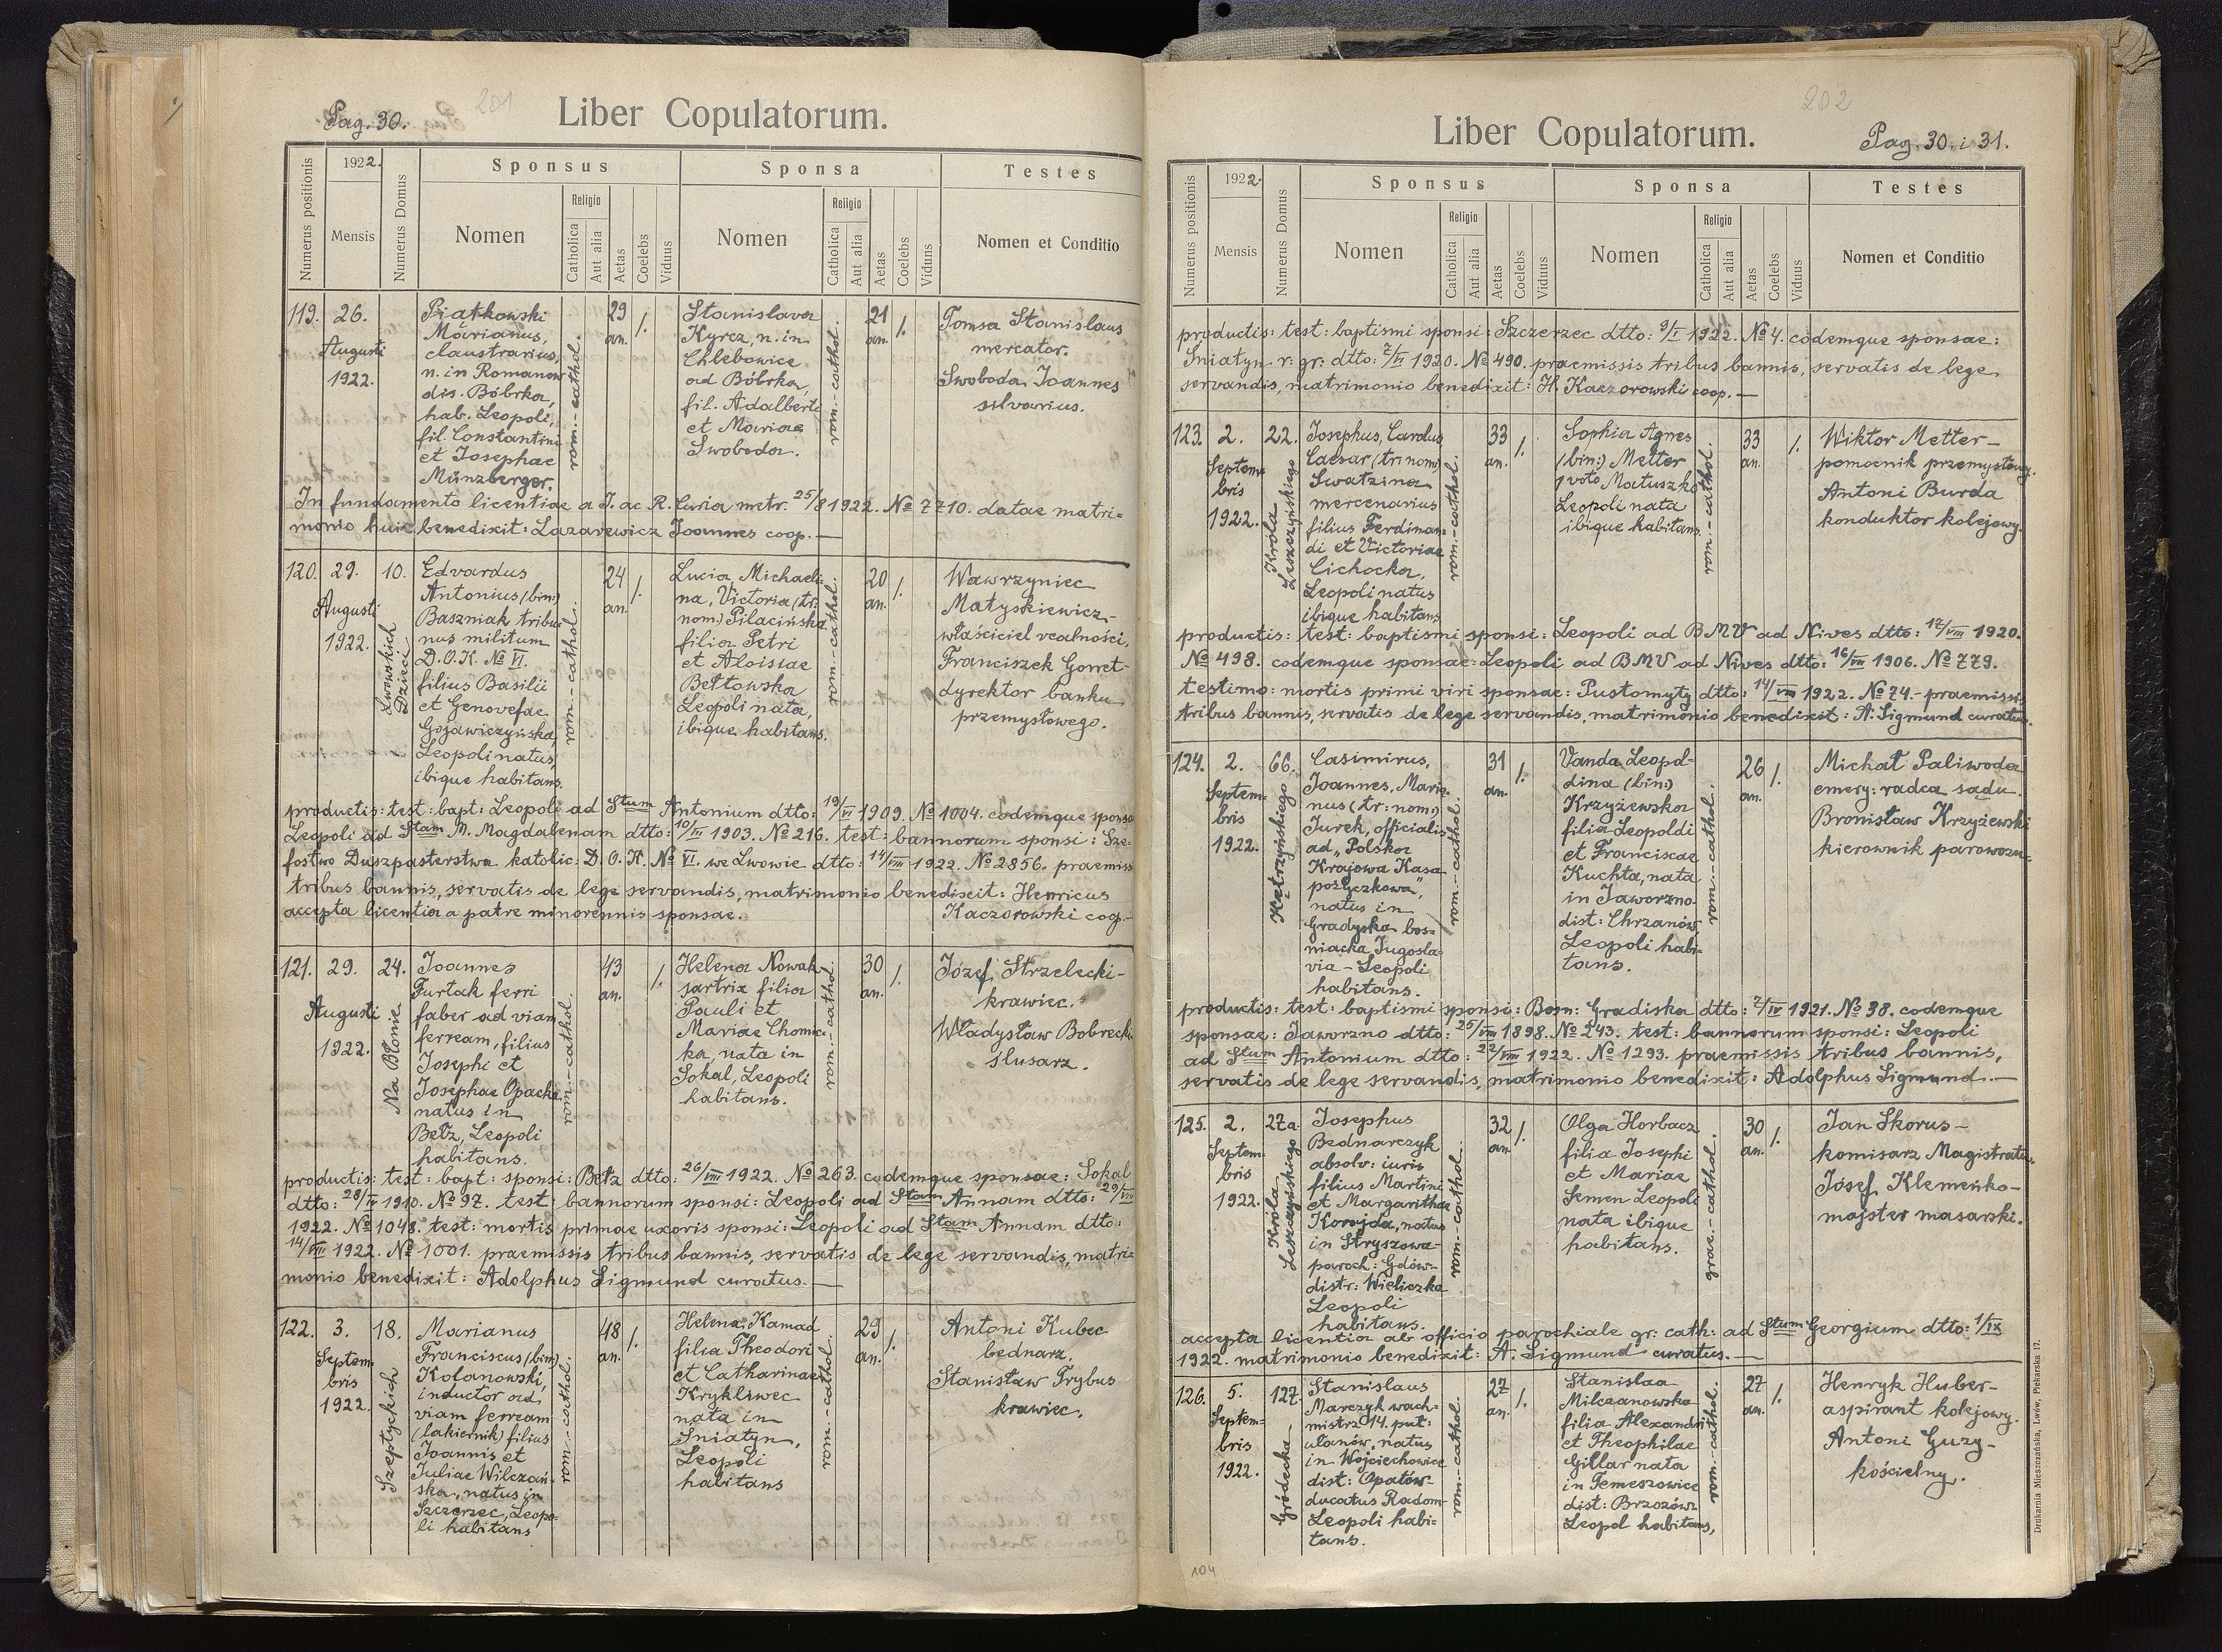 Pag. 30.
201
Liber Copulatorum.
Numerus positionis
1922.
Mensis
Numerus Domus
Sponsus
Nomen
Religio
Catholica
Aut alia
Aetas
Coelebs
Viduus
Sponsa
Nomen
Religio
Catholica
Aut alia
Aetas
Coelebs
Viduus
Testes
Nomen et Conditio
119.
26.
Augusti
1922.
Piątkowski
Marianus,
claustrarius,
n. in Romanow
dis. Bóbrka,
hab. Leopoli,
fil. Constantini
et Josephae
Münzberger.
rom.-cathol.
29
an.
/.
Stanislava
Kyrcz, n. in
Chlebowice
ad Bóbrka,
fil. Adalberti
et Mariae
Swoboda.
rom.-cathol.
21
an.
/.
Tomsa Stanislaus
mercator.
Swoboda Joannes
silvarius.
In fundamento licentiae a J. ac R. Curia metr. 25/8 1922. No 7710. datae matri=
monio huic benedixit: Lazarewicz Joannes coop.—
120.
29.
Augusti
1922.
10.
Lwowskich
Dzieci
Edvardus
Antonius (bin:)
Baszniak tribu
nus militum
D.O.K. No VI.
filius Basilii
et Genovefae
Gojawiczyńska,
Leopoli natus,
ibique habitans.
rom.-cathol.
24
an.
/.
Lucia, Michaeli=
na, Victoria (tr:
nom:) Pilacińska
filia Petri
et Aloisiae
Bełtowska
Leopoli nata,
ibique habitans.
rom.-cathol.
20
an.
/.
Wawrzyniec
Matyskiewicz,-
właściciel realności,
Franciszek Gorret-
dyrektor banku
przemysłowego.
productis: test: bapt: Leopoli ad Stum Antonium dtto: 19/VI 1909. No 1004. eodemque sponsa
Leopoli ad Stam M. Magdalenam dtto: 10/III 1903. No 216. test: bannorum sponsi: Sze=
fostwo Duszpasterstwa katolic: D.O.K. No VI. we Lwowie dtto: 14/VIII 1922. No 2856. praemiss
tribus bannis, servatis de lege servandis, matrimonio benedixit: Henricus
accepta licentia a patre minorennis sponsae.
Kaczorowski coop.-
121.
29.
Augusti
1922.
24.
Na Błonie
Joannes
Furtak ferri
faber ad viam
ferream, filius
Josephi et
Josephae Opacka
natus in
Bełz, Leopoli
habitans.
rom.-cathol.
43
an.
/.
Helena Nowak
sartrix filia
Pauli et
Mariae Chomic-
ka, nata in
Sokal, Leopoli
habitans.
rom.-cathol.
30
an.
/.
Józef Strzelecki-
krawiec.
Władysław Bobrecki
ślusarz.
productis: test: bapt: sponsi: Bełz dtto: 26/VIII 1922. No 263. eodemque sponsae: Sokal
dtto: 28/II 1910. No 97. test: bannorum sponsi: Leopoli ad Stam Annam dtto: 29/VIII
1922. No 1048. test: mortis primae uxoris sponsi: Leopoli ad Stam Annam dtto:
14/VIII 1922. No 1001. praemissis tribus bannis, servatis de lege servandis, matri=
monio benedixit: Adolphus Sigmund curatus.—
122.
3.
Septem=
bris
1922.
18.
Szeptyckich
Marianus
Franciscus (bin)
Kolanowski,
inductor ad
viam ferream
(lakiernik) filius
Joannis et
Juliae Wilczań-
ska, natus in
Szczerzec, Leopo-
li habitans
rom.-cathol.
48
an.
/.
Helena Kamad
filia Theodori
et Catharinae
Krykliwec
nata in
Śniatyn,
Leopoli
habitans
rom.-cathol.
29
an.
/.
Antoni Kubec
bednarz.
Stanisław Trybus
krawiec.
202
Liber Copulatorum.
Pag. 30. i 31.
Numerus positionis
1922.
Mensis
Numerus Domus
Sponsus
Nomen
Religio
Catholica
Aut alia
Aetas
Coelebs
Viduus
Sponsa
Nomen
Religio
Catholica
Aut alia
Aetas
Coelebs
Viduus
Testes
Nomen et Conditio
productis: test: baptismi sponsi: Szczerzec dtto: 9/I 1922. No 4. eodemque sponsae:
Śniatyn r: gr: dtto: 7/VI 1920. No 490. praemissis tribus bannis, servatis de lege
servandis, matrimonio benedixit: H. Kaczorowski coop.—
123.
2.
Septem=
bris
1922.
22.
Króla
Leszczyńskiego
Josephus, Carolus
Caesar (tr: nom:)
Swatzina
mercenarius
filius Ferdinan=
di et Victoriae
Cichocka,
Leopoli natus
ibique habitans
rom.-cathol.
33
an.
/.
Sophia Agnes
(bin:) Metter
1 voto Matuszko
Leopoli nata
ibique habitans.
rom.-cathol.
33
an.
/.
Wiktor Metter-
pomocnik przemysłowy.
Antoni Burda
konduktor kolejowy.
productis: test: baptismi sponsi: Leopoli ad BMV ad Nives dtto: 17/VIII 1920.
No 498. eodemque sponsae: Leopoli ad BMV ad Nives dtto: 16/VIII 1906. No 779.
testimo: mortis primi viri sponsae: Pustomyty dtto: 14/VIII 1922. No 74.- praemissis
tribus bannis, servatis de lege servandis, matrimonio benedixit: A. Sigmund curatus.
124.
2.
Septem=
bris
1922.
66.
Kętrzyńskiego
Casimirus,
Joannes, Maria-
nus (tr: nom:)
Jurek, officialis
ad „Polska
Krajowa Kasa
pożyczkowa",
natus in
Gradyska bos=
niacka Jugosla=
via - Leopoli
habitans.
rom.-cathol.
31
an.
/.
Vanda Leopol-
dina (bin:)
Krzyżewska
filia Leopoldi
et Franciscae
Kuchta, nata
in Jaworzno
dist: Chrzanów,
Leopoli habi-
tans.
rom.-cathol.
26
an.
/.
Michał Paliwoda
emery: radca sądu.
Bronisław Krzyżewski
kierownik parowozu=
productis: test: baptismi sponsi: Bosn: Gradiska dtto: 7/IV 1921. No 38. eodemque
sponsae: Jaworzno dtto: 25/VIII 1898. No 243. test: bannorum sponsi: Leopoli
ad Stum Antonium dtto: 22/VIII 1922. No 1293. praemissis tribus bannis,
servatis de lege servandis, matrimonio benedixit: Adolphus Sigmund.—
125.
2.
Septem=
bris
1922.
27a.
Króla
Leszczyńskiego
Josephus
Bednarczyk
absolv: iuris
filius Martini
et Margarithae
Korajda, natus
in Stryszowa-
paroch: Gdów-
distr: Wieliczka
Leopoli
habitans.
rom.-cathol.
32
an.
/.
Olga Horbacz
filia Josephi
et Mariae
Semen Leopoli
nata ibique
habitans.
graec.-cathol.
30
an.
/.
Jan Skorus-
komisarz Magistratu.
Józef Klemeńko-
majster masarski.
accepta licentia ab officio parochiale gr: cath: ad Stum Georgium dtto: 1/IX
1922. matrimonio benedixit: A. Sigmund curatus.—
126.
5.
Septem=
bris
1922.
127.
Gródecka
Stanislaus
Marczyk wach-
mistrz 14. puł:
ułanów, natus
in Wojciechowice
dist: Opatów-
ducatus Radom-
Leopoli habi=
tans.
rom.-cathol.
27
an.
/.
Stanislaa
Milczanowska
filia Alexandri
et Theophilae
Gillar nata
in Temeszowice
dist: Brzozów-
Leopol habitans,
rom.-cathol.
27
an.
/.
Henryk Huber-
aspirant kolejowy.
Antoni Guzy-
kościelny.
Drukarnia Mieszczańska, Lwów, Piekarska 17.
104